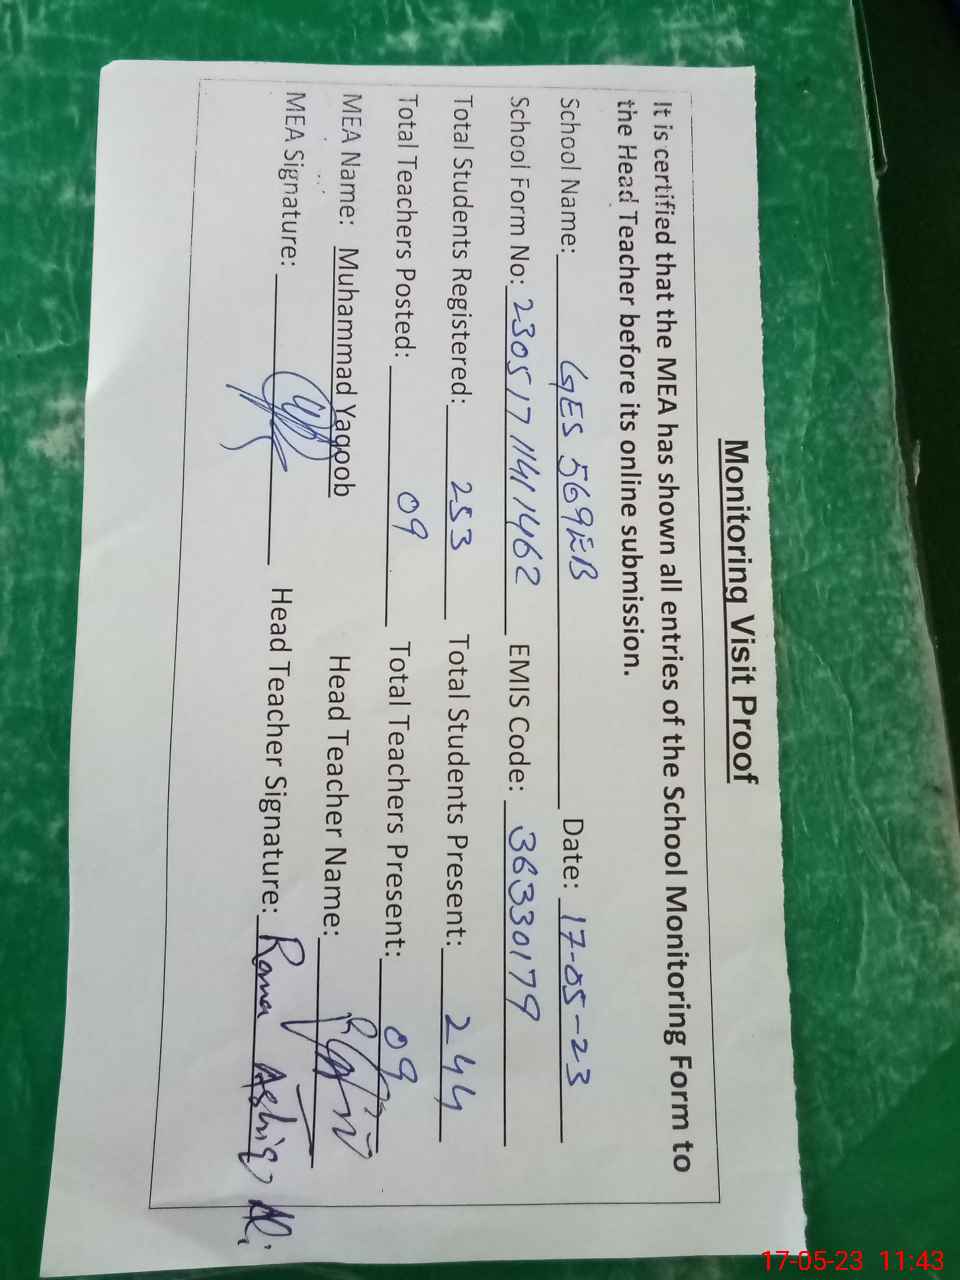 Monitoring Visit Proof
It is certified that the MEA has shown all entries of the School Monitoring Form to
the Head Teacher before its online submission.
School Name: GES 569EB Date: 17-05-23
School Form No: 23051711411462 EMIS Code: 36330179
Total Students Registered: 253 Total Students Present: 244
Total Teachers Posted: 09 Total Teachers Present: 09
MEA Name: Muhammad Yaqoob Head Teacher Name:
MEA Signature: Head Teacher Signature: Rana Ashiq Ali
17-05-23 11:43